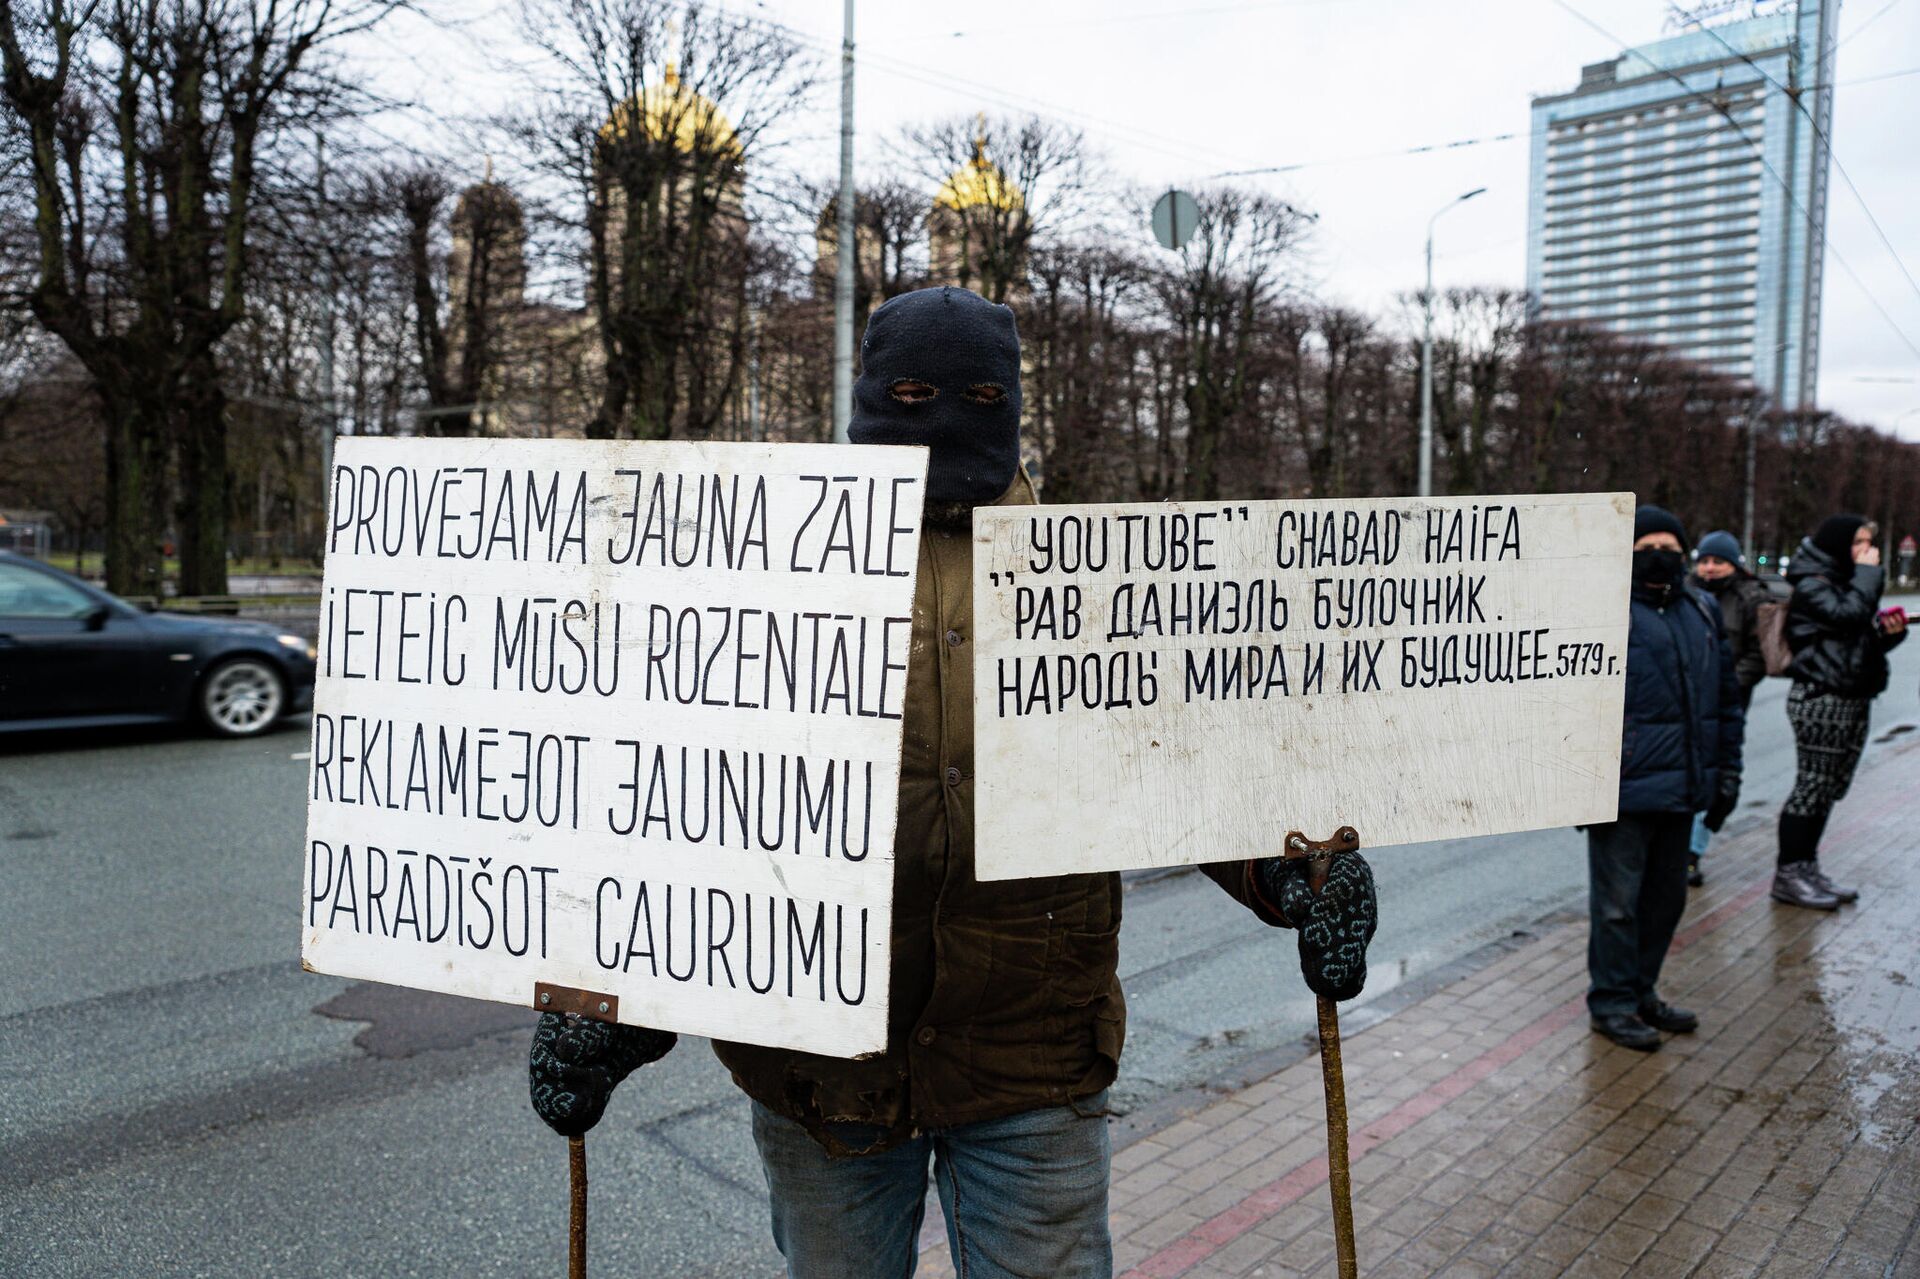 PROVĒJAMA JAUNA ZĀLE
IETEIC MŪSU ROZENTĀLE
REKLAMĒJOT JAUNUMU
PARĀDĪŠOT CAURUMU
,,YOUTUBE” CHABAD HAIFA
,,РАВ ДАНИЭЛЬ БУЛОЧНИК.
НАРОДЬ МИРА И ИХ БУДУЩЕЕ.5779 г.